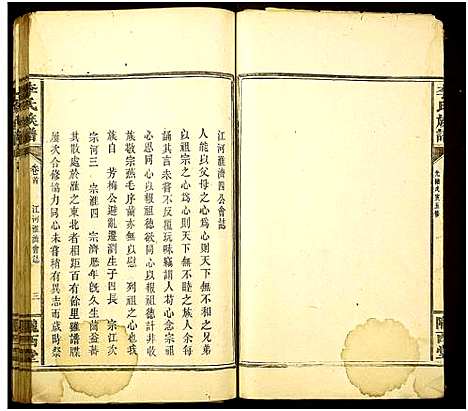 李氏族譜
光緒戊寅五修
隴西堂
江河淮濟四公會誌
人能以父母之心爲心則天下無不友之兄弟
以祖宗之心爲心則天下無不睦之族人余每
誦其言未嘗不反復玩味竊謂人苟心念宗祖
心必恩同心以報祖德欲同心以報祖德計非收
族敬宗燕毛序齒亦無以慰 列祖之心粵稽我
族自 芳梅公避亂遷瀏生子四長 宗江次
宗河三 宗淮四 宗濟歷年旣久生齒益蕃
其散處於雁之東北者相距百有餘里雖譜牒
屢次合修協力同心未嘗稍有異志而歲時祭
李氏族譜
卷首
江河淮濟會誌
三
隴西堂